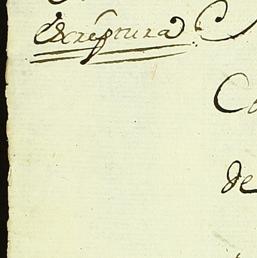 Escriptura
Co
de